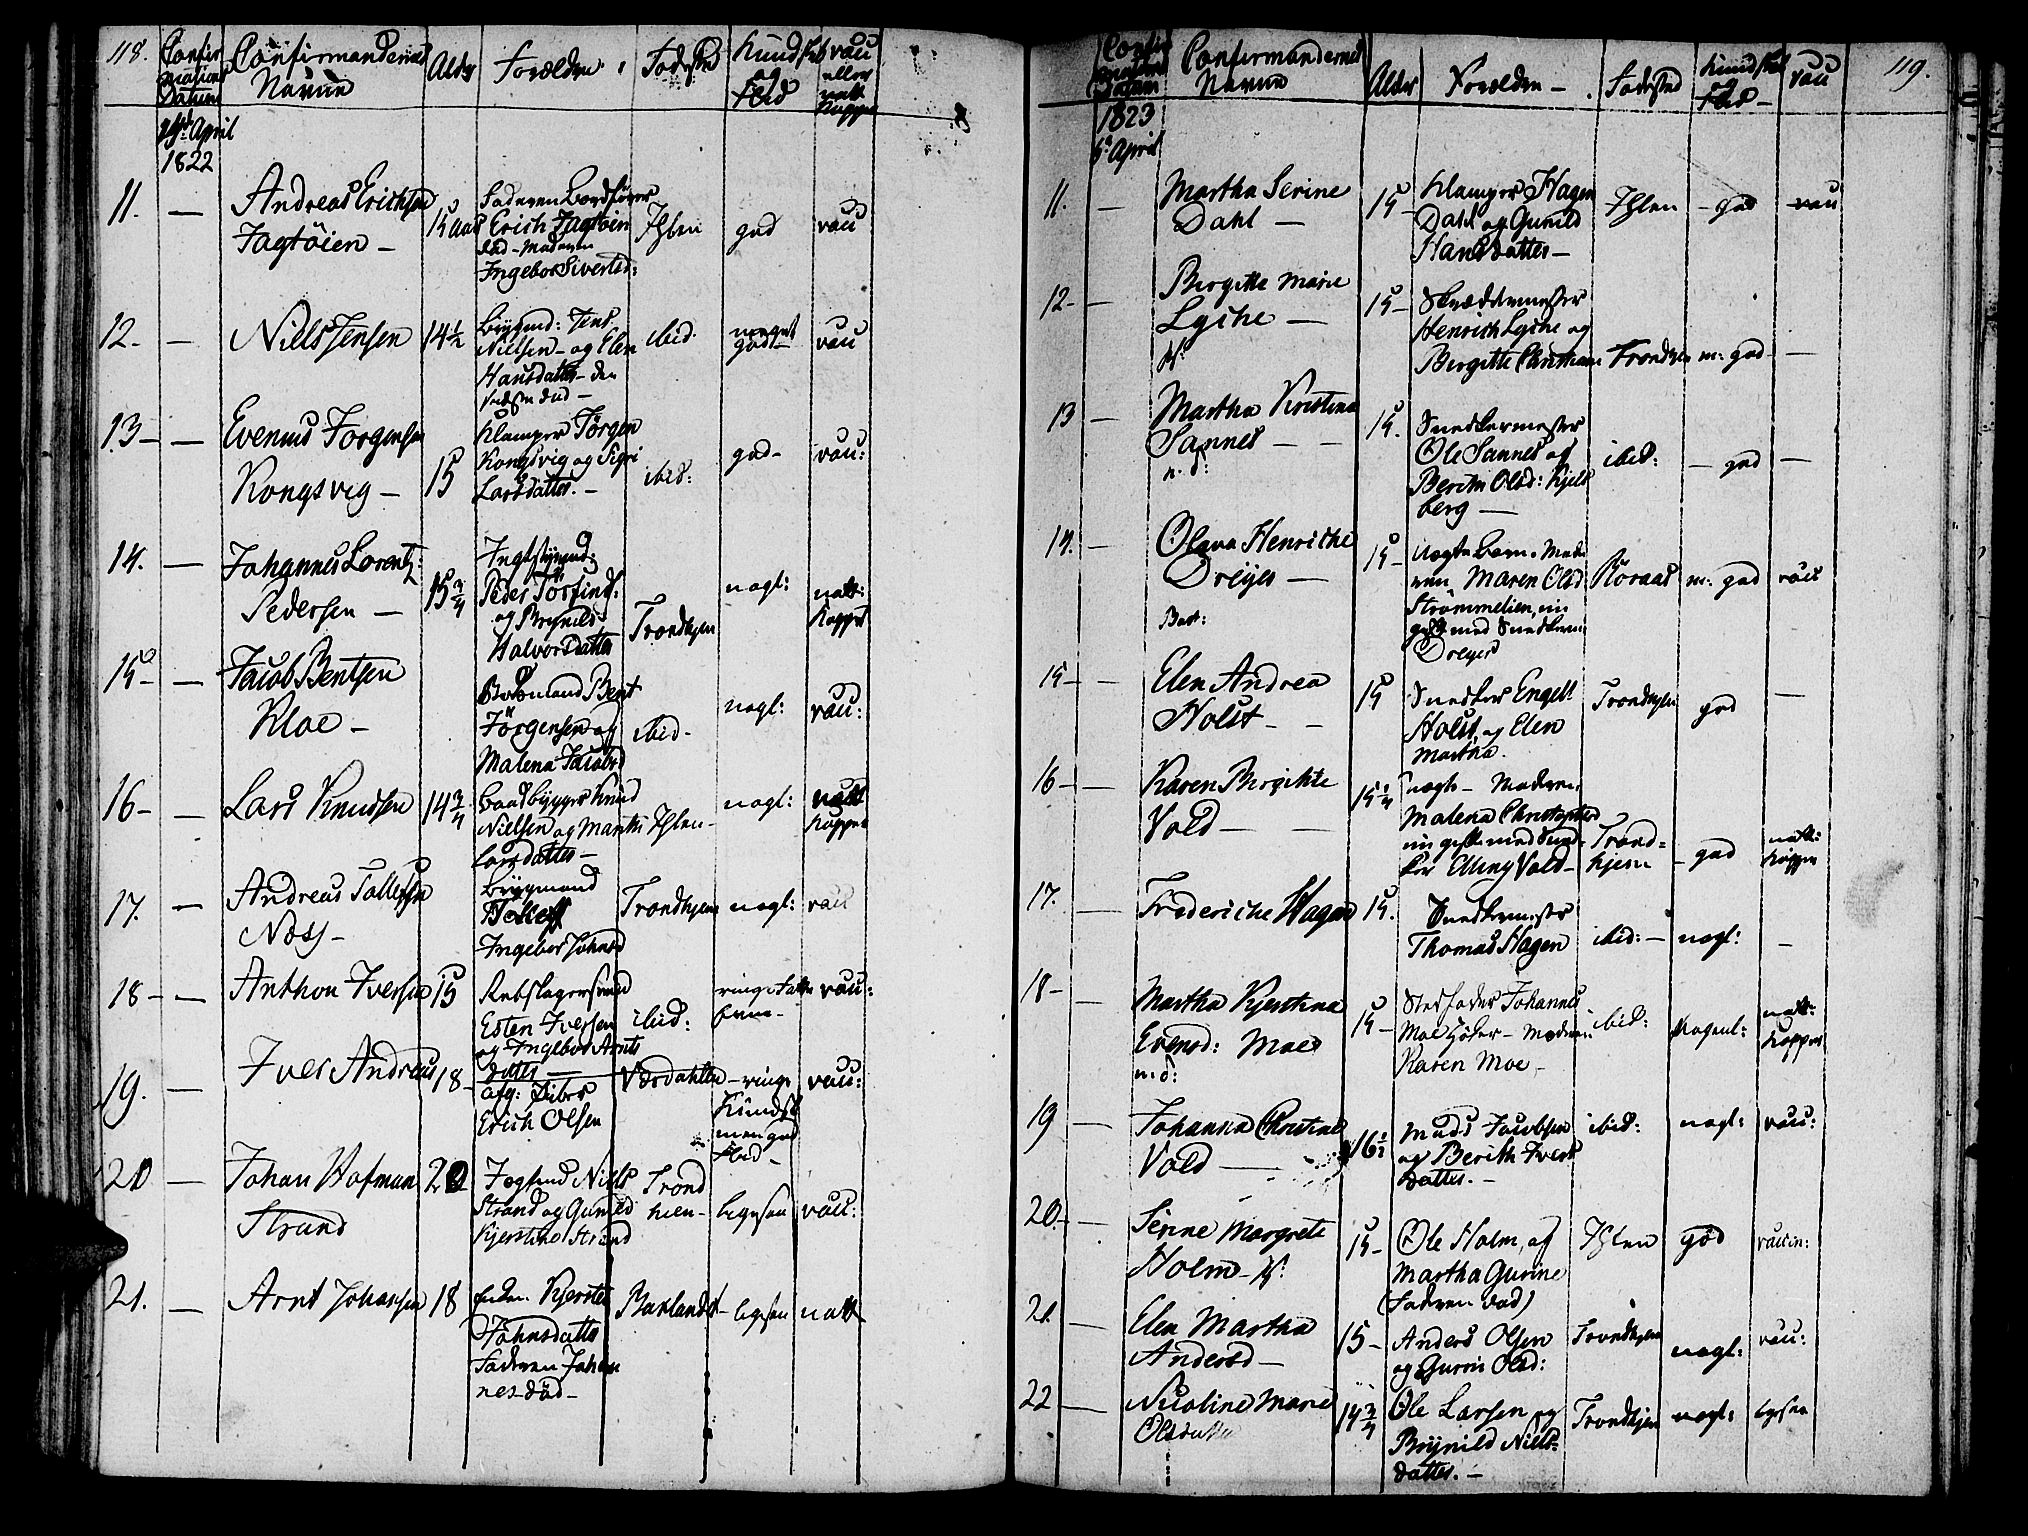 118.
Confir
mations
Datum
Confirmandernes
Navne
Alder
Forældre
Fødested
Kundskab
og
Flid
vac
eller
natt
Kopper
April
1822
11. — Andreas Erichsen
Jagtöien —
15 aar
Faderen Bordfører
Erich Jagtöien
död – Moderen
Ingebor Sivertsd:
Ihlen
god
vac
12 — — Niels Jensen
14½
Brygmd: Jens
Nielsen – og Elen
Hansdatter – den
död –
ibid.
meget
god —
vac
13 — — Evenus Jörgensen
Kongsvig —
15
Klamper Jörgen
Kongsvig og Sigri
Larsdatter. —
ibid:
god –
vac:
14. — Johannes Lorentz
Pedersen —
15¾
Peder Torfinds:
og Brynild
Halvorsdatter
Trondhjem
nogl:
natt:
Kopper
15 — — Jacob Bentsen
Kloe —
Bent
Jörgensen og
Malena Jacobsd
ibid –
nogl:
vac:
16 — — Lars Knudsen
14¾
Baadbygger Knud
Nielsen og Marith
Larsdatter —
Ihlen –
nogl:
natt
Kopper
17. — Andreas Tollefsen
Næss —
Brygmand
Tollef
Ingebor Johnsd
Trondhjem
nogl:
vac
18 — — Anthon Iversen
15
Rebslagersvend
Esten Iversen
og Ingebor Arnts
datter —
ibid:
ringe
vac:
19. — Iver Andreas
18 –
afg:
Erich Olsen
Værdahlen
– ringe
Kundsk
men god
Flid –
vac:
20 — Johan Hofman
Strand
20
Niels
Strand og Gunild
Kjerstine Strand
Trond
hiem –
ligesaa
vac:
21. — Arnt Johansen
18
Kjersten
Johnsdatter
Faderen Johan
nes – död –
Baklandet
– ligesaa
natt
119.
Confir
mations
Datum
Confirmandernes
Navne
Alder
Forældre —
Fødested
Kundskab
og
Flid —
vac
1823
April
11. — Martha Serine
Dahl —
15 –
Klamper Hagen
Dahl og Gunild
Hansdatter —
Ihlen
– god
vac
12 — — Birgitte Marie
Lyche —
15 –
Skræddermester
Henrich Lyche og
Birgitte
Trondhjem
m: god –
—
13 — Martha Kristina
Sannes — —
n. d:
15.
Snedkermester
Ole Sannes og
Berith Olsd: Kjels
berg —
ibid:
– god
—
14. — Olava Henriche
Dreyer —
15 –
Uægte Barn. Mode
ren Maren Olsd
Strömmelien, nu
gift med Snedker
Dreyer
Röraas
m: god
vac
15 — — Elen Andrea
Holst — —
15
Snedker Engelb
Holst og Elen
Martha.
Trondhjem
god
—
16 — — Karen Birgitte
Vold — —
15¼
uægte – Moderen
Malena Christophersd
nu gift med Sned
ker Elling Vold –
Trond=
hjem
– god
natt:
kopper
17. — Frideriche Hagen
15.
Snedkermester
Thomas Hagen
ibid: –
nogl:
–
18 — — Martha Kjerstina
Evensd: Moe
n. d:
15 –
Stedfader Johannes
Moe – Moderen
Karen Moe –
ibid:
natt:
Kopper
19 — Johanna Christine
Vold —
16½
Mads Jacobsen
og Berith Ivers
datter. –
ibid:
nogl:
vac:
20 — — Serine Margrete
Holm –
15 –
Ole Holm, og
Martha Gurine
(Faderen död)
Ihlen
god
vaccin:
21. — Elen Martha
Andersd —
15 –
Anders Olsen
og Gurni Olsd:
Trondhjem
nogl:
vac:
22 — Nicoline Marie
Olsdatter
14¾
Ole Larsen og
Brynild Niels
datter. —
Trondhjem
nogl:
ligesaa